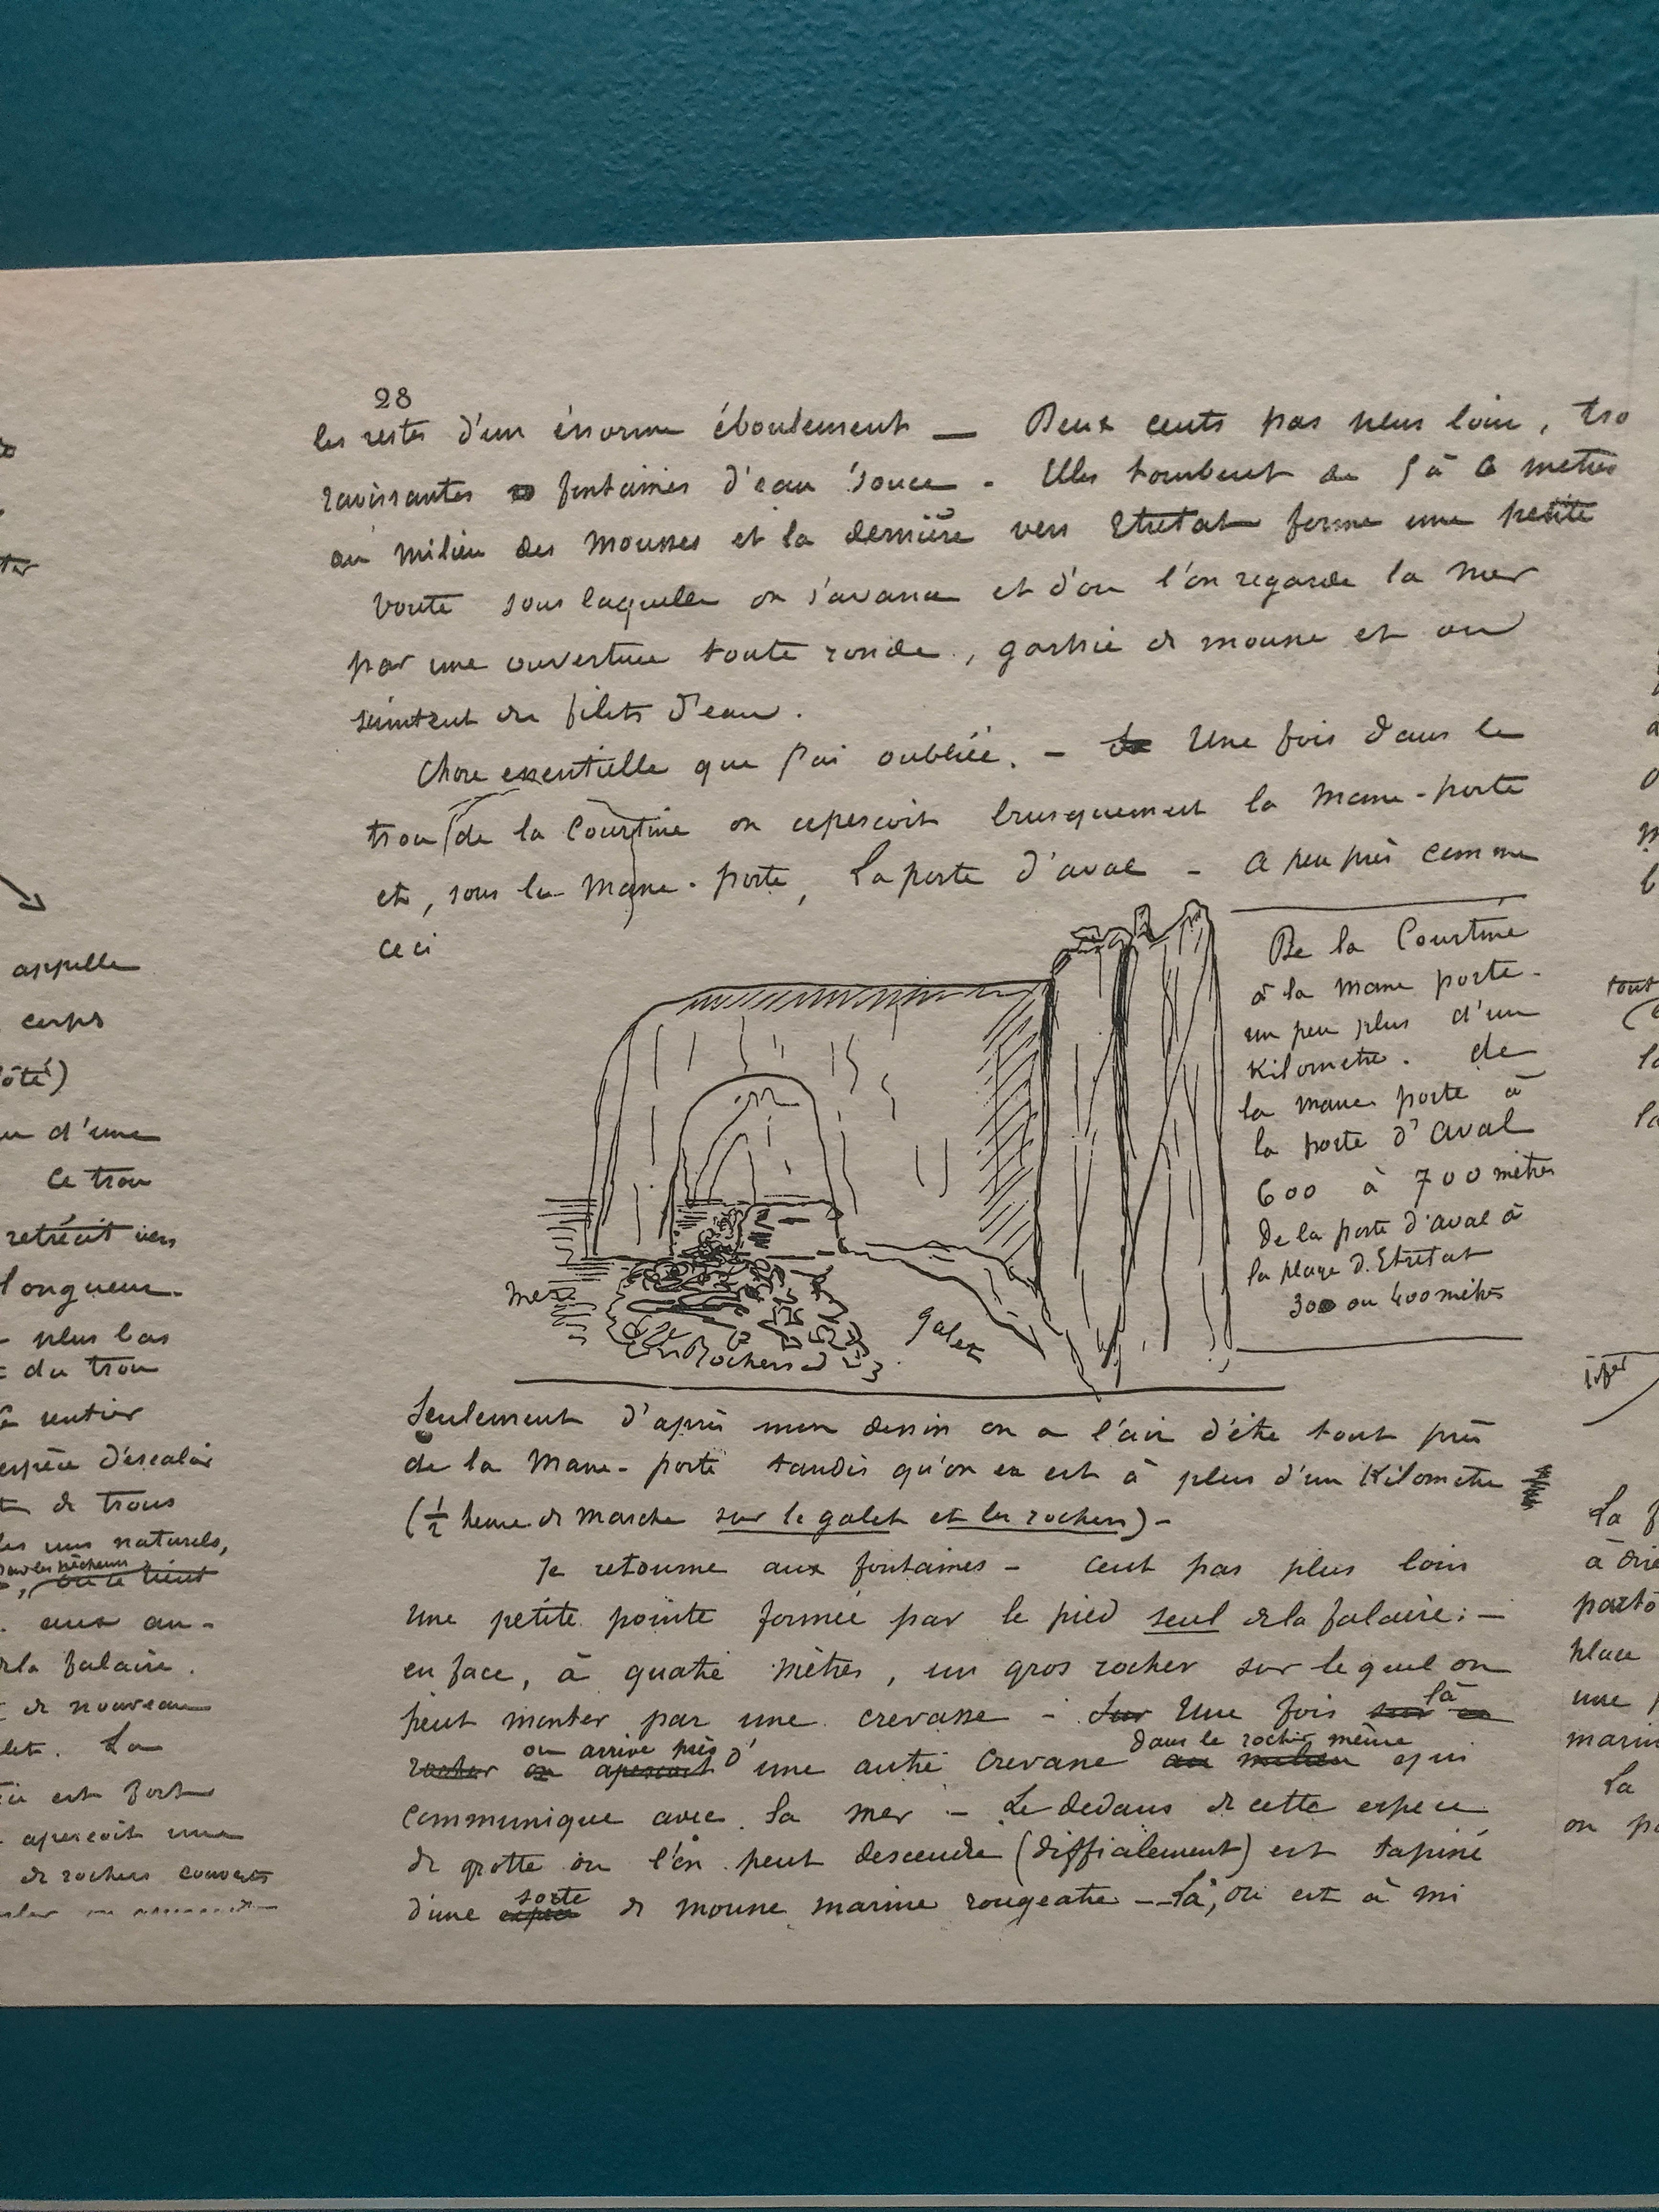 28
les restes d'un énorme éboulement — Deux cents pas plus loin, tro
ravissantes fontaines d'eau douce. Elles tombent de 5 à 6 metres
au milieu des mousses et la dernière vers Etretat forme une petite
voute sous laquelle on s'avance et d'ou l'on regarde la mer
par une ouverture toute ronde, garnie de mousse et ou
suintent de filets d'eau.
Chose essentielle que j'ai oubliée. — Une fois dans le
trou (de la Courtine on apercoit brusquement la Manne-porte
et, sous la Manne-porte, La porte d'aval - a peu près comme
ceci
De la Courtine
à la Manne porte
un peu plus d'un
Kilometre. de
la manne porte à
la porte d'aval
600 à 700 mètres
De la porte d'aval à
la plage d'Etretat
300 ou 400 mètres
mer
Rochers
galet
Seulement d'après mon dessin on a l'air d'être tout près
de la Manne-porte tandis qu'on en est à plus d'un Kilometre
(½ heure de marche sur le galet et les rochers) -
Je retourne aux fontaines - Cent pas plus loin
Une petite pointe formée par le pied seul de la falaise : —
en face, à quatre mètres, un gros rocher sur lequel on
peut monter par une crevasse - Sur Une fois sur ce là
rocher on apercoit on arrive près d'une autre crevasse au milieu dans le rocher même qui
communique avec la mer - Le dedans de cette espece
de grotte ou l'on peut descendre (difficilement) est tapissé
d'une espece sorte de mousse marine rougeatre - Là, on est à mi
appelle
corps
côté)
d'une
Ce trou
retrécit vers
longueur.
plus bas
du trou
sentier
espèce d'escalier
de trous
les uns naturels,
par les pêcheurs
aux au-
de la falaise.
de nouveau
La
est fort
apercoit une
de rochers couverts
tout
La
à
place
une
marin
La
on